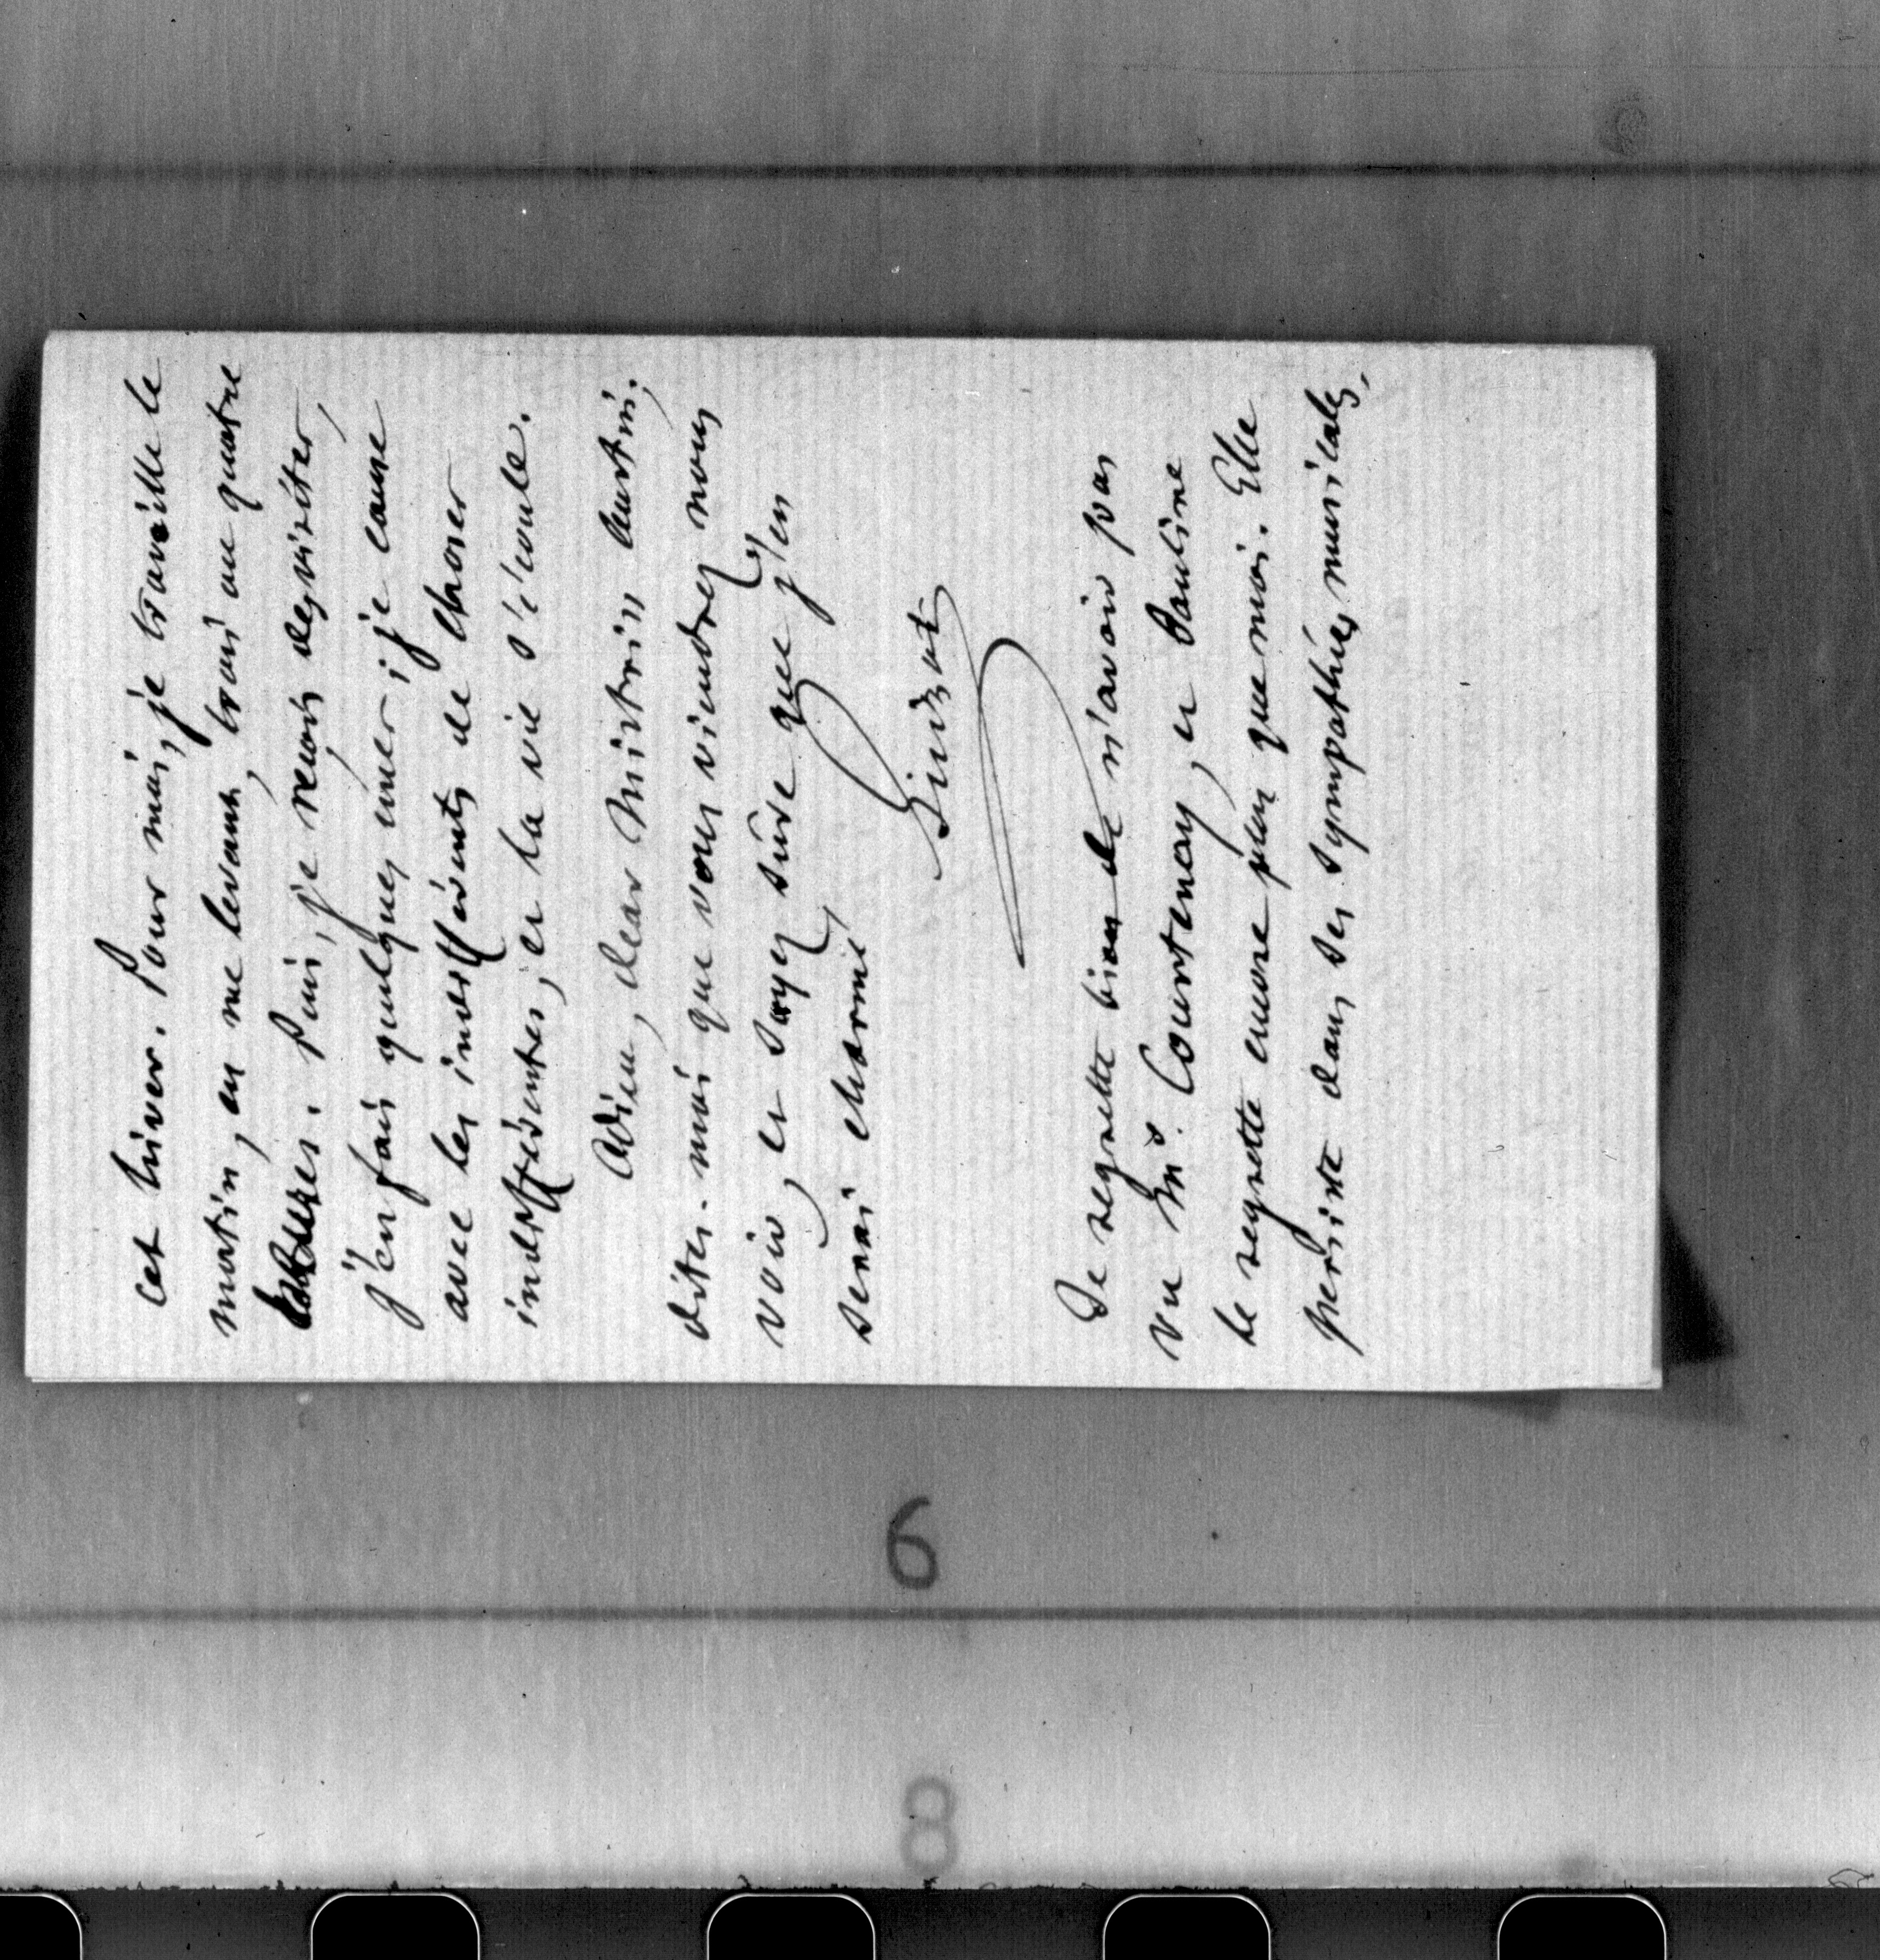 cet hiver. Pour moi, je travaille le
matin, en me levant, trois ou quatre
heures. Puis, je reçois des visites,
j'en fais quelques unes; je cause
avec les indifférents de choses
indifférentes, et la vie s'écoule.
Adieu, dear Mistriss Austin,
dites-moi que vous viendrez nous
voir, et soyez sûre que j'en
serai charmé
Guizot
Je regrette bien de n'avoir pas
vu Mr. Courtenay, et Pauline
le regrette encore plus que moi. Elle
persiste dans ses sympathies musicales.
6
8